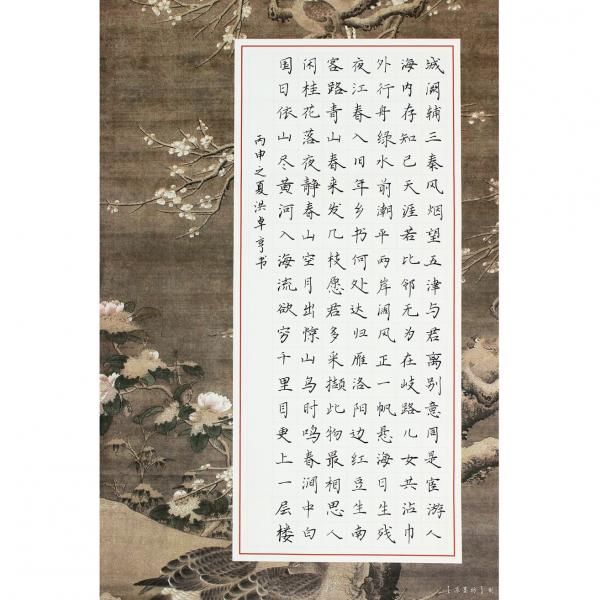 城阙辅三秦风烟望五津与君离别意同是宦游人
海内存知己天涯若比邻无为在岐路儿女共沾巾
外行舟绿水前潮平两岸阔风正一帆悬海日生残
夜江春入旧年乡书何处达归雁洛阳边红豆生南
客路青山春来发几枝愿君多采撷此物最相思人
闲桂花落夜静春山空月出惊山鸟时鸣春涧中白
国日依山尽黄河入海流欲穷千里目更上一层楼
丙申之夏洪卓亨书